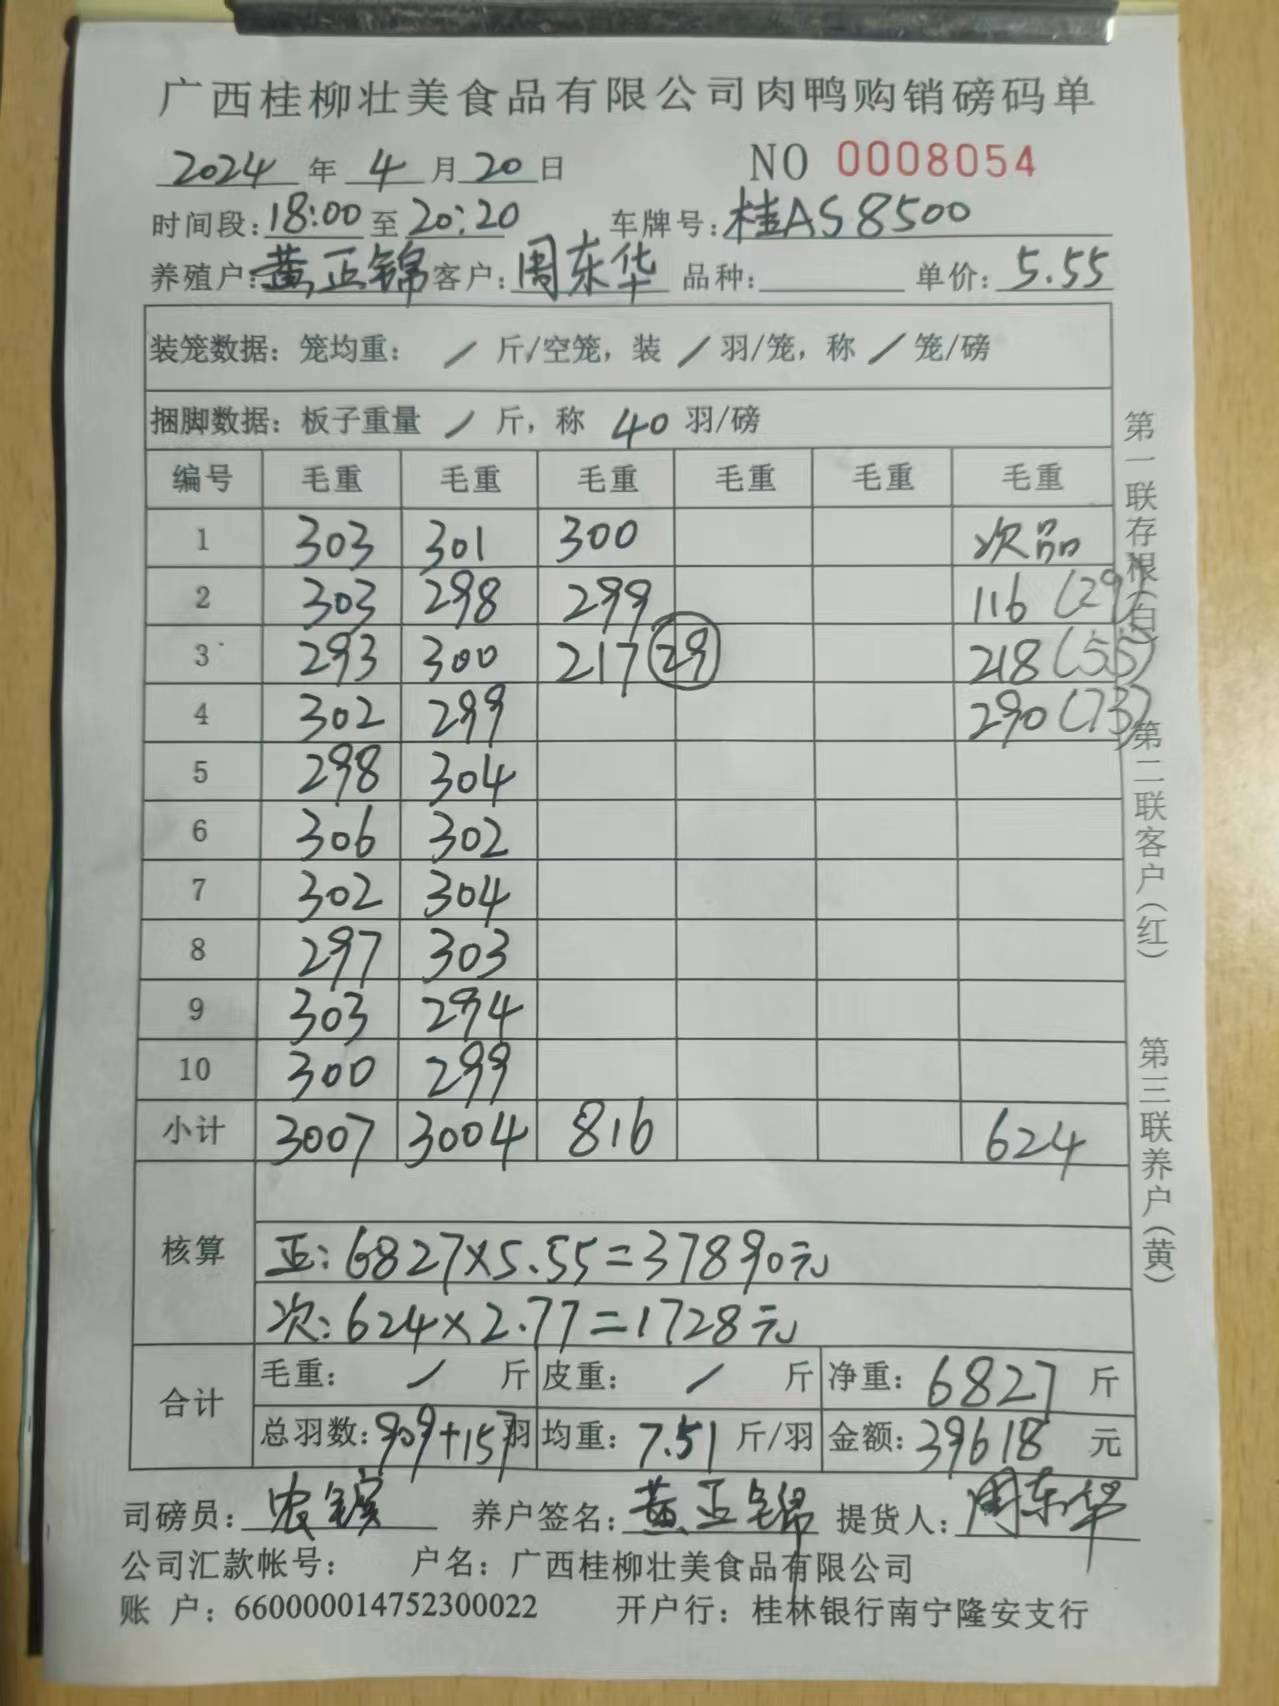 广西桂柳壮美食品有限公司肉鸭购销磅码单
2024 年 4 月 20 日 NO 0008054
时间段: 18:00 至 20:20 车牌号: 桂AS8500
养殖户: 黄正锦 客户: 周东华 品种: 单价: 5.55
装笼数据: 笼均重: / 斤/空笼, 装 / 羽/笼, 称 / 笼/磅
捆脚数据: 板子重量 / 斤, 称 40 羽/磅
编号 毛重 毛重 毛重 毛重 毛重 毛重
1 303 301 300 次品
2 303 298 299 116 (29)
3 293 300 217 29 218 (55)
4 302 299 290 (73)
5 298 304
6 306 302
7 302 304
8 297 303
9 303 294
10 300 299
小计 3007 3004 816 624
核算
正: 6827×5.55=37890元
次: 624×2.77=1728元
合计
毛重: / 斤 皮重: / 斤 净重: 6827 斤
总羽数: 909+157 羽 均重: 7.51 斤/羽 金额: 39618 元
司磅员: 农 养户签名: 黄正锦 提货人: 周东华
公司汇款帐号: 户名: 广西桂柳壮美食品有限公司
账 户: 660000014752300022 开户行: 桂林银行南宁隆安支行
第一联存根(白) 第二联客户(红) 第三联养户(黄)